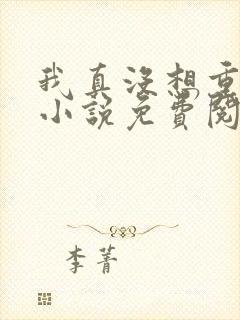 我真沒想重
小說免費閱
李菁